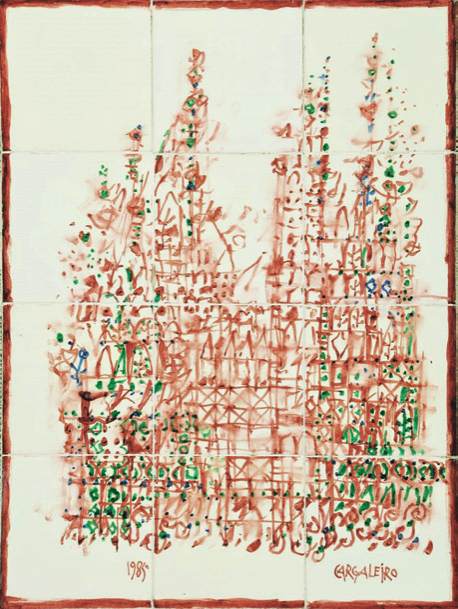 1985 CARGALEIRO